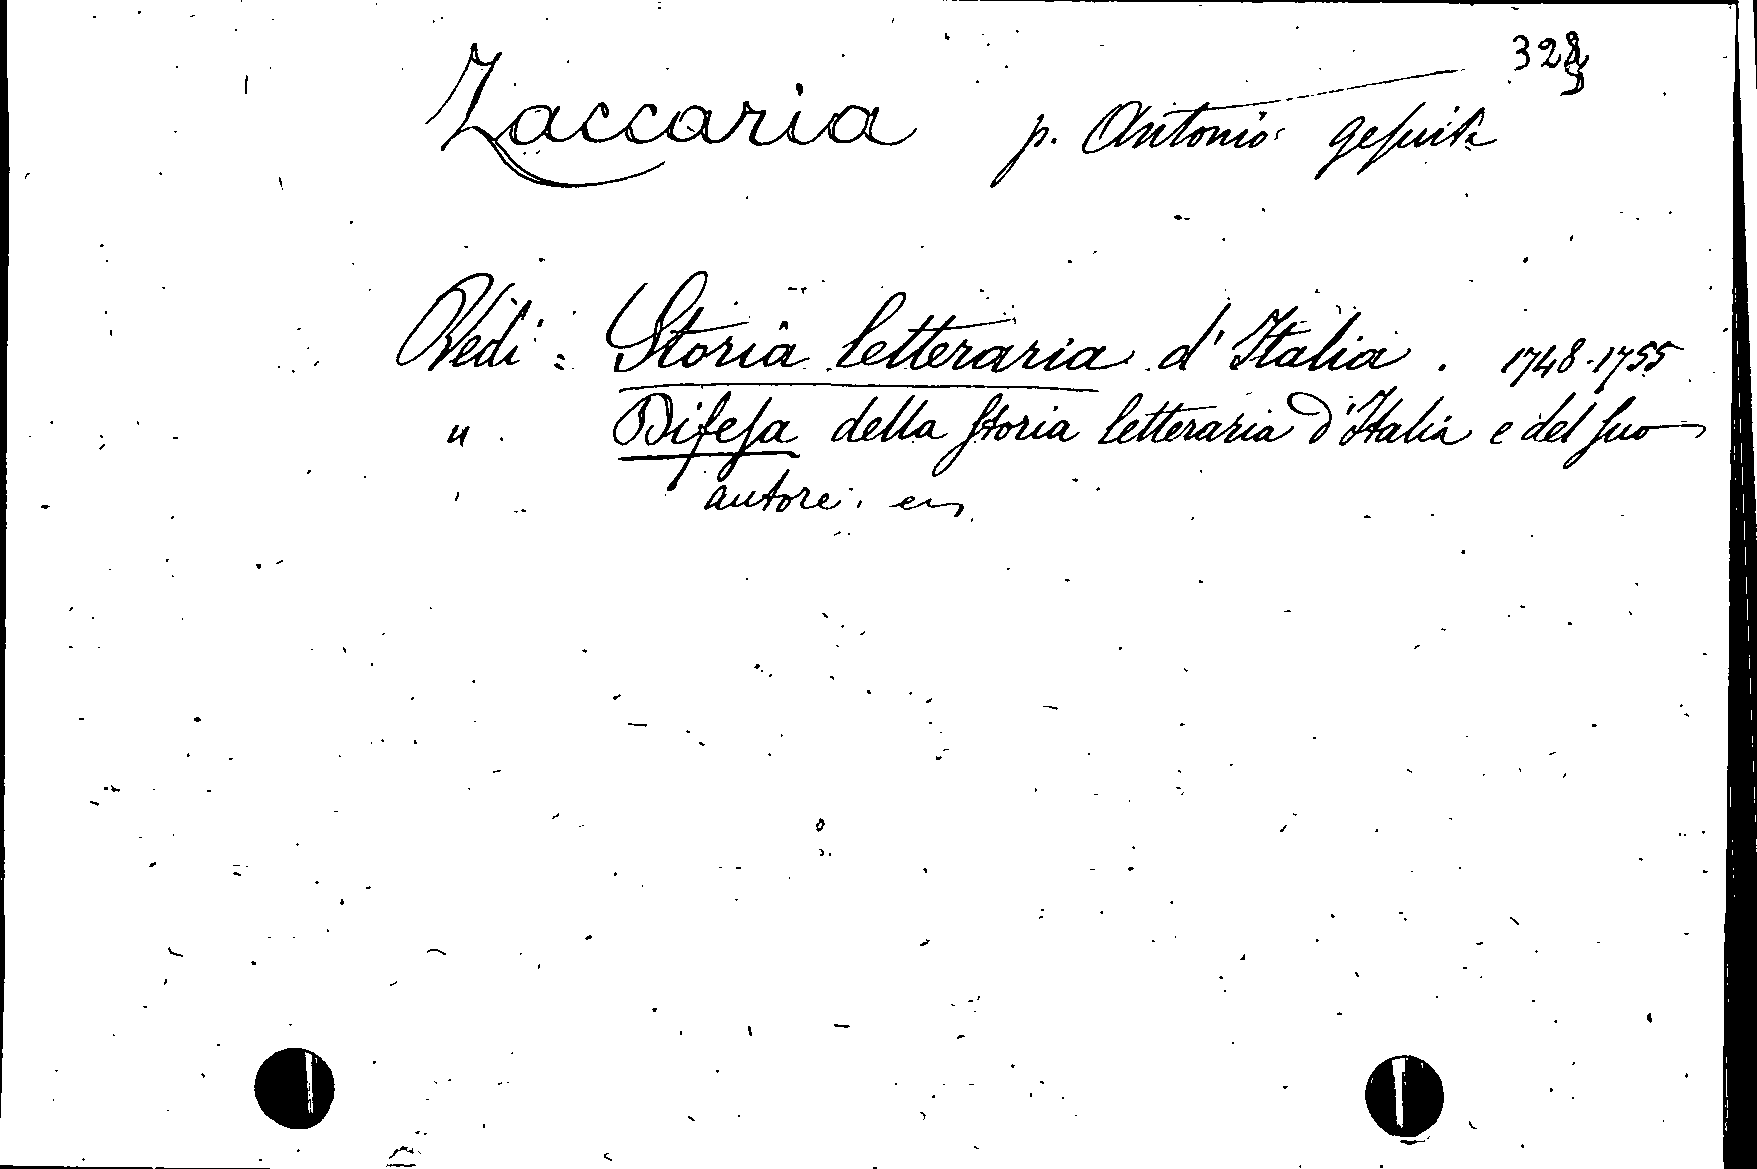 328
Zaccaria p. Antonio gesuita
Vedi: Storia letteraria d'Italia. 1748-1755
" Difesa della storia letteraria d'Italia e del suo
autore.